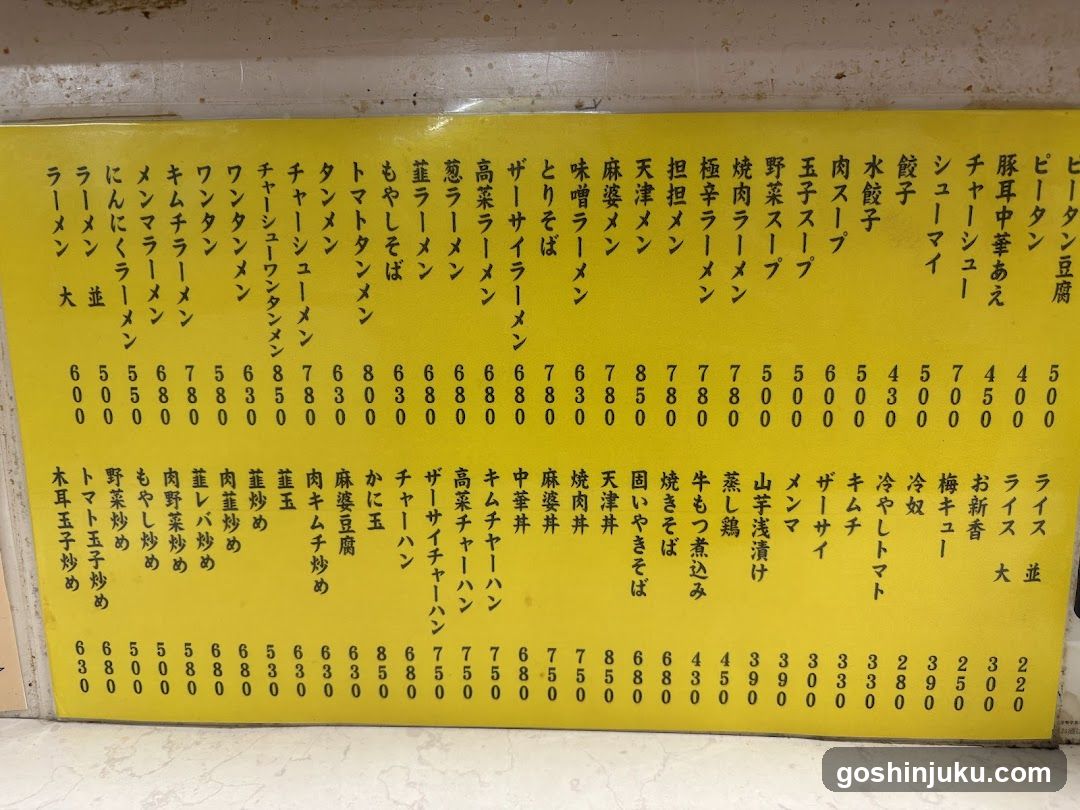 ピータン豆腐 500
ピータン 400
豚耳中華あえ 450
チャーシュー 700
シューマイ 500
餃子 430
水餃子 500
肉スープ 600
玉子スープ 500
野菜スープ 500
焼肉ラーメン 780
極辛ラーメン 780
担担メン 780
天津メン 850
麻婆メン 780
味噌ラーメン 630
とりそば 780
ザーサイラーメン 680
高菜ラーメン 680
葱ラーメン 680
韮ラーメン 680
もやしそば 630
トマトタンメン 800
タンメン 630
チャーシューメン 780
チャーシューワンタンメン 850
ワンタンメン 630
ワンタン 580
キムチラーメン 780
メンマラーメン 680
にんにくラーメン 550
ラーメン 並 500
ラーメン 大 600
ライス 並 220
ライス 大 300
お新香 250
梅キュー 390
冷奴 280
冷やしトマト 330
キムチ 330
ザーサイ 300
メンマ 390
山芋浅漬け 390
蒸し鶏 450
牛もつ煮込み 430
焼きそば 680
固いやきそば 680
天津丼 850
焼肉丼 750
麻婆丼 750
中華丼 680
キムチヤーハン 750
高菜チャーハン 750
ザーサイチャーハン 750
チャーハン 680
かに玉 850
麻婆豆腐 630
肉キムチ炒め 630
韮玉 630
韮炒め 530
肉韮炒め 680
韮レバ炒め 680
肉野菜炒め 580
もやし炒め 500
野菜炒め 500
トマト玉子炒め 680
木耳玉子炒め 630
goshinjuku.com